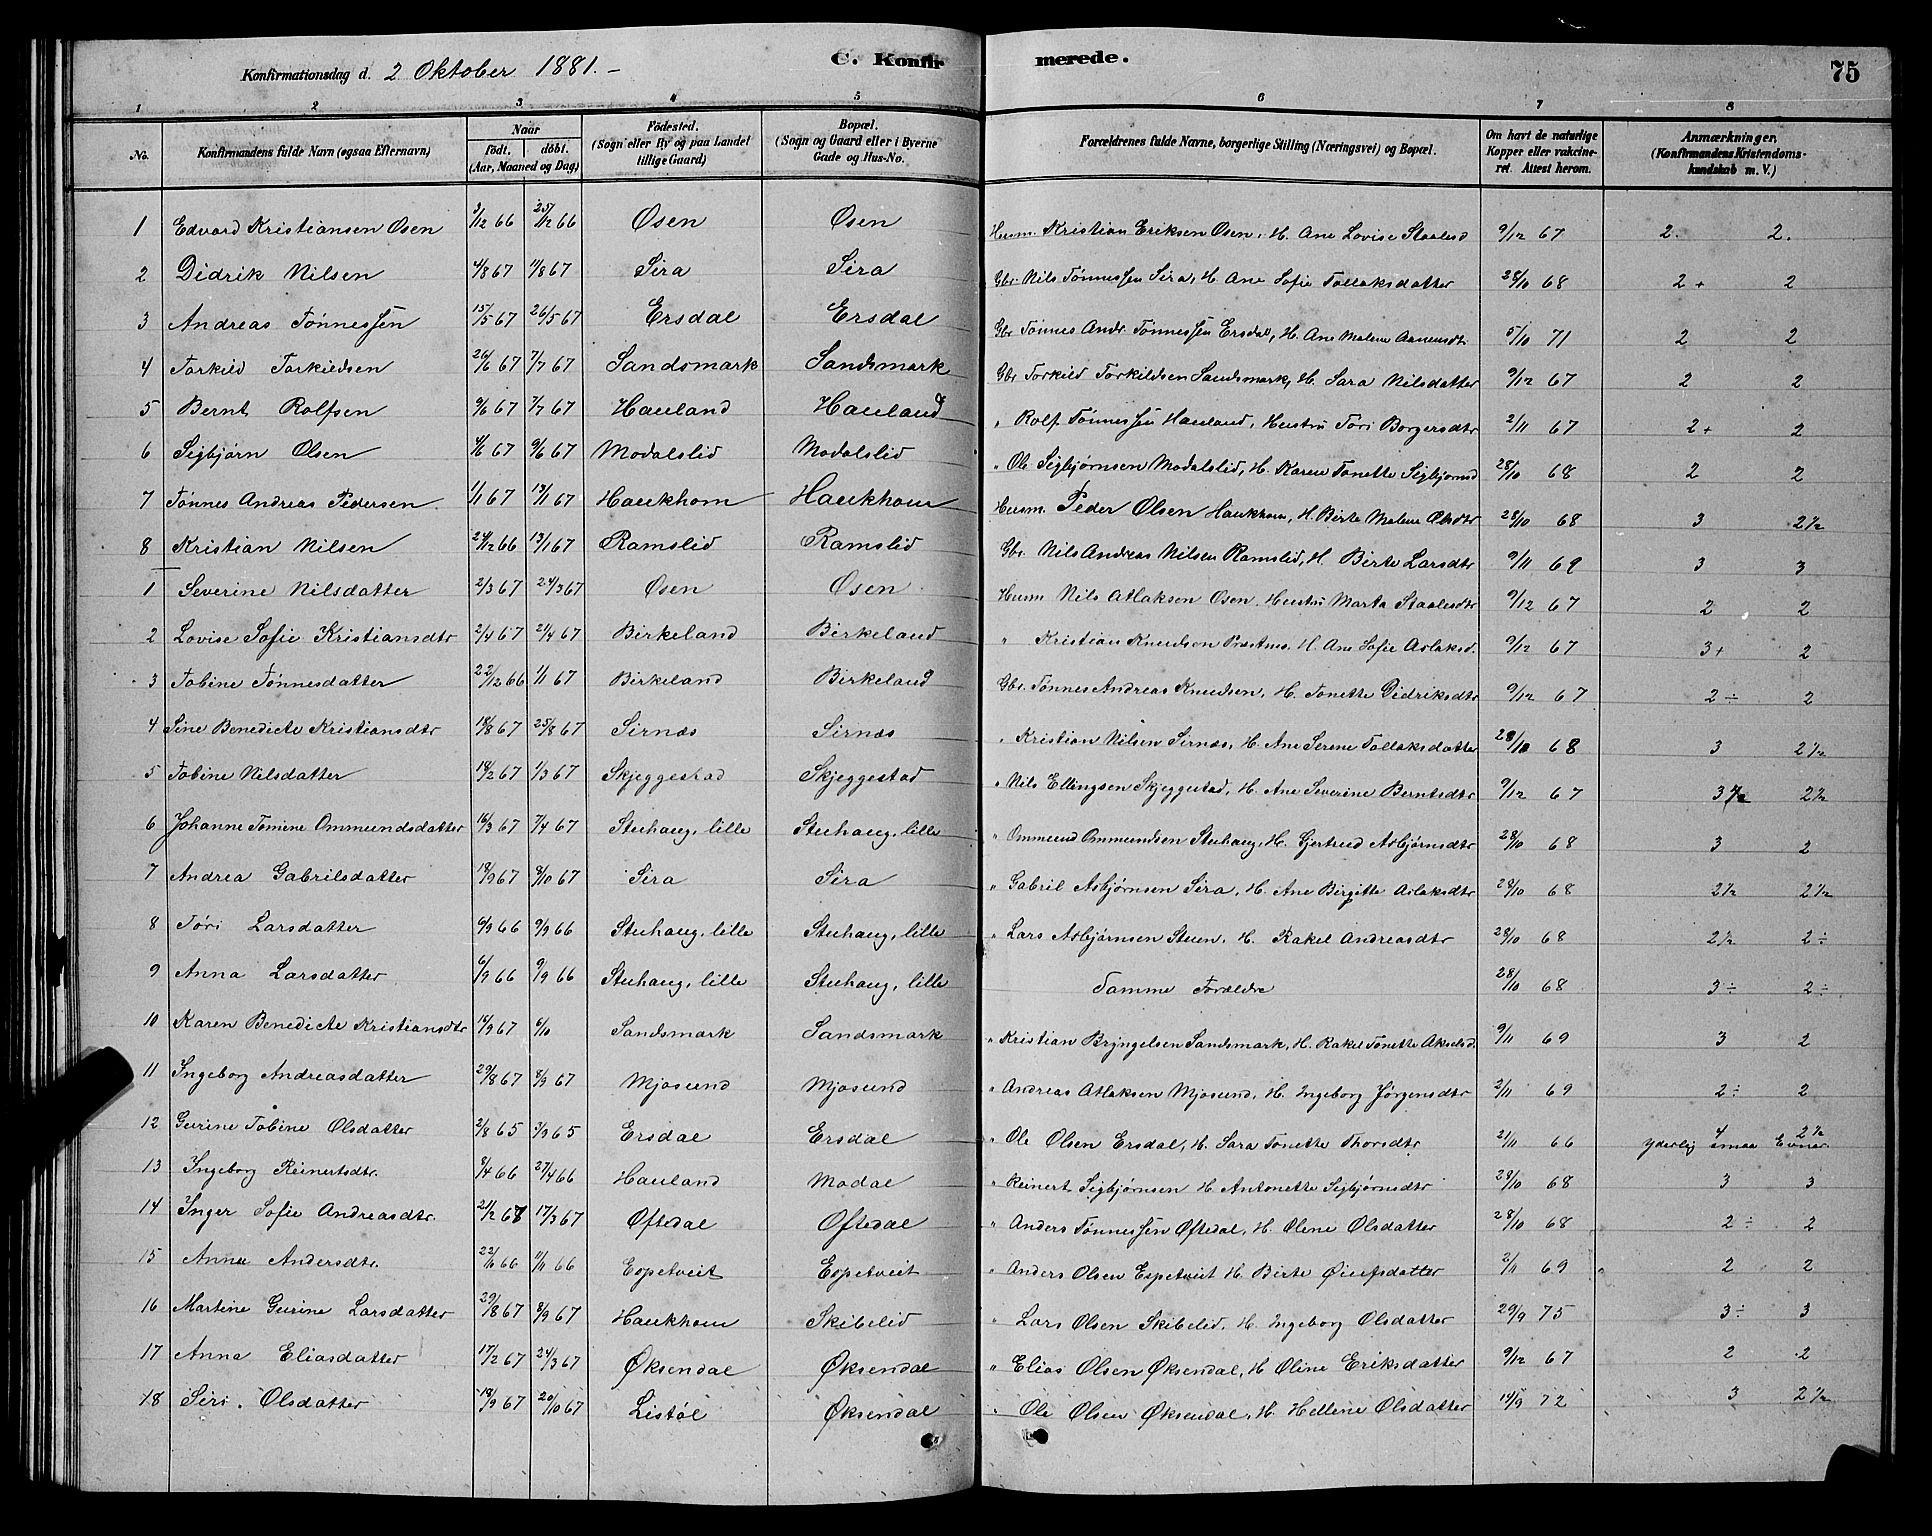 Konfirmationsdag d. 2 Oktober 1881. –
C. Konfirmerede.
75
1 2 3 4 5 6 7 8
No.
Konfirmandens fulde Navn (ogsaa Efternavn)
Naar
født, døbt.
(Aar, Maaned og Dag)
Fødested.
(Sogn eller By og paa Landet tillige Gaard)
Bopæl.
(Sogn og Gaard eller i Byerne Gade og Hus-No.
Forældrenes fulde Navne, borgerlige Stilling (Næringsvei) og Bopæl.
Om havt de naturlige Kopper eller vakcineret. Attest herom.
Anmærkninger,
(Konfirmandens Kristendomskundskab m. V.)
1 Edvard Kristiansen Osen 3/12 66 25/12 66 Osen Osen Husm. Kristian Eriksen Osen, H. Ane Lovise Staalesd 9/12 67 2. 2.
2 Didrik Nilsen 4/8 67 11/8 67 Sira Sira Gbr. Nils Tønnessen Sira, H. Ane Sofie Tollaksdatter 28/10 68 2+ 2
3 Andreas Tønnessen 15/5 67 26/5 67 Ersdal Ersdal Gbr Tønnes Andr. Tønnessen Ersdal, H. Ane Malene Aanensdt. 5/10 71 2 2
4 Torkild Torkildsen 26/6 67 7/7 67 Sandsmark Sandsmark Gbr Torkild Torkildsen Sandsmark, H. Sara Nilsdatter 9/12 67 2 2
5 Bernt Rolfsen 9/6 67 7/7 67 Hauland Hauland " Rolf Tønnessen Hauland, Hustru Tøri Borgersdtr 2/11 67 2+ 2
6 Sigbjørn Olsen 4/6 67 9/6 67 Modalslid Modalslid " Ole Sigbjørnsen Modalslid, H. Karen Tonette Sigbjørnsd 28/10 68 2 2
7 Tønnes Andreas Pedersen 1/1 67 13/1 67 Haukhom Haukhom Husm. Peder Olsen Haukhom, H. Birte Malene Olsdtr 28/10 68 3 2½
8 Kristian Nilsen 24/12 66 13/1 67 Ramslid Ramslid Gbr. Nils Andreas Nilsen Ramslid, H. Birte Larsdtr 9/11 69 3 3
1 Severine Nilsdatter 2/3 67 24/3 67 Osen Osen Husm Nils Atlaksen Osen, Hustru Marta Staalesdtr 9/12 67 2 2
2 Lovise Sofie Kristiansdtr 2/4 67 21/4 67 Birkeland Birkeland " Kristian Knudsen Præstms. H. Ane Sofie Aslaksd. 9/12 67 3+ 2
3 Tobine Tønnesdatter 22/12 66 1/1 67 Birkeland Birkeland Gbr. Tønnes Andreas Knudsen, H. Tonette Didriksdtr 9/12 67 2÷ 2
4 Sine Benedicte Kristiansdtr 18/8 67 25/8 67 Sirnæs Sirnæs " Kristian Nilsen Sirnæs, H. Ane Serene Tollaksdatter 28/10 68 3 2½
5 Tobine Nilsdatter 18/2 67 1/3 67 Skjeggestad Skjeggestad " Nils Ellingsen Skjeggestad, H. Ane Severine Berntsdtr 9/12 67 3½ 2½
6 Johanne Tomine Ommundsdatter 16/3 67 7/4 67 Stuhaug, lille Stuhaug, lille " Ommund Ommundsen Stuhaug, H. Gjertrud Asbjørnsdtr 28/10 68 3 2
7 Andrea Gabrilsdatter 18/9 67 8/10 67 Sira Sira " Gabril Asbjørnsen Sira, H. Ane Birgitte Aslaksdtr 28/10 68 2½ 2½
8 Tøri Larsdatter 6/9 66 9/9 66 Stuhaug, lille Stuhaug, lille " Lars Asbjørnsen Stuen, H. Rakel Andreasdtr 28/10 68 2½ 2÷
9 Anna Larsdatter 6/9 66 9/9 66 Stuhaug, lille Stuhaug, lille Samme Forældre 28/10 68 3÷ 2÷
10 Karen Benedicte Kristiansdtr 16/9 67 6/10 Sandsmark Sandsmark " Kristian Bryngelsen Sandsmark, H. Rakel Tonette Akselsd. 9/11 69 3 2
11 Ingeborg Andreasdatter 29/8 67 8/9 67 Mjosund Mjosund " Andreas Atlaksen Mjosund, H. Ingeborg Jørgensdtr 2/11 69 2÷ 2
12 Gurine Tobine Olsdatter 2/8 65 3/9 65 Ersdal Ersdal " Ole Olsen Ersdal, H. Sara Tonette Thorsdtr 21/11 66 4 2½
yderlig smaa Evner
13 Ingeborg Reinertsdtr. 8/4 66 27/4 66 Hauland Modal " Reinert Sigbjørnsen H Antonette Sigbjørnsdtr 28/10 68 3 3
14 Inger Sofie Andreasdtr. 21/2 67 17/3 67 Oftedal Oftedal " Anders Tønnessen Øftedal, H. Oline Olsdatter 28/10 68 2÷ 2
15 Anna Andersdtr. 66 11/11 66 Espetveit Espetveit " Anders Olsen Espetveit H. Birte Øiufsdatter 2/11 69 2 2
16 Martine Gurine Larsdatter 29/8 67 8/9 67 Haukhom Skibelid " Lars Olsen Skibelid, H. Ingeborg Olsdatter 29/9 75 3÷ 3
17 Anna Eliasdatter 17/2 67 24/3 67 Øksendal Øksendal " Elias Olsen Øksendal, H Oline Eriksdatter 9/12 67 2 2
18 Siri Olsdatter 18/9 67 20/10 67 Listøl Øksendal " Ole Olsen Øksendal, H. Hellene Olsdatter 14/9 72 3 2½